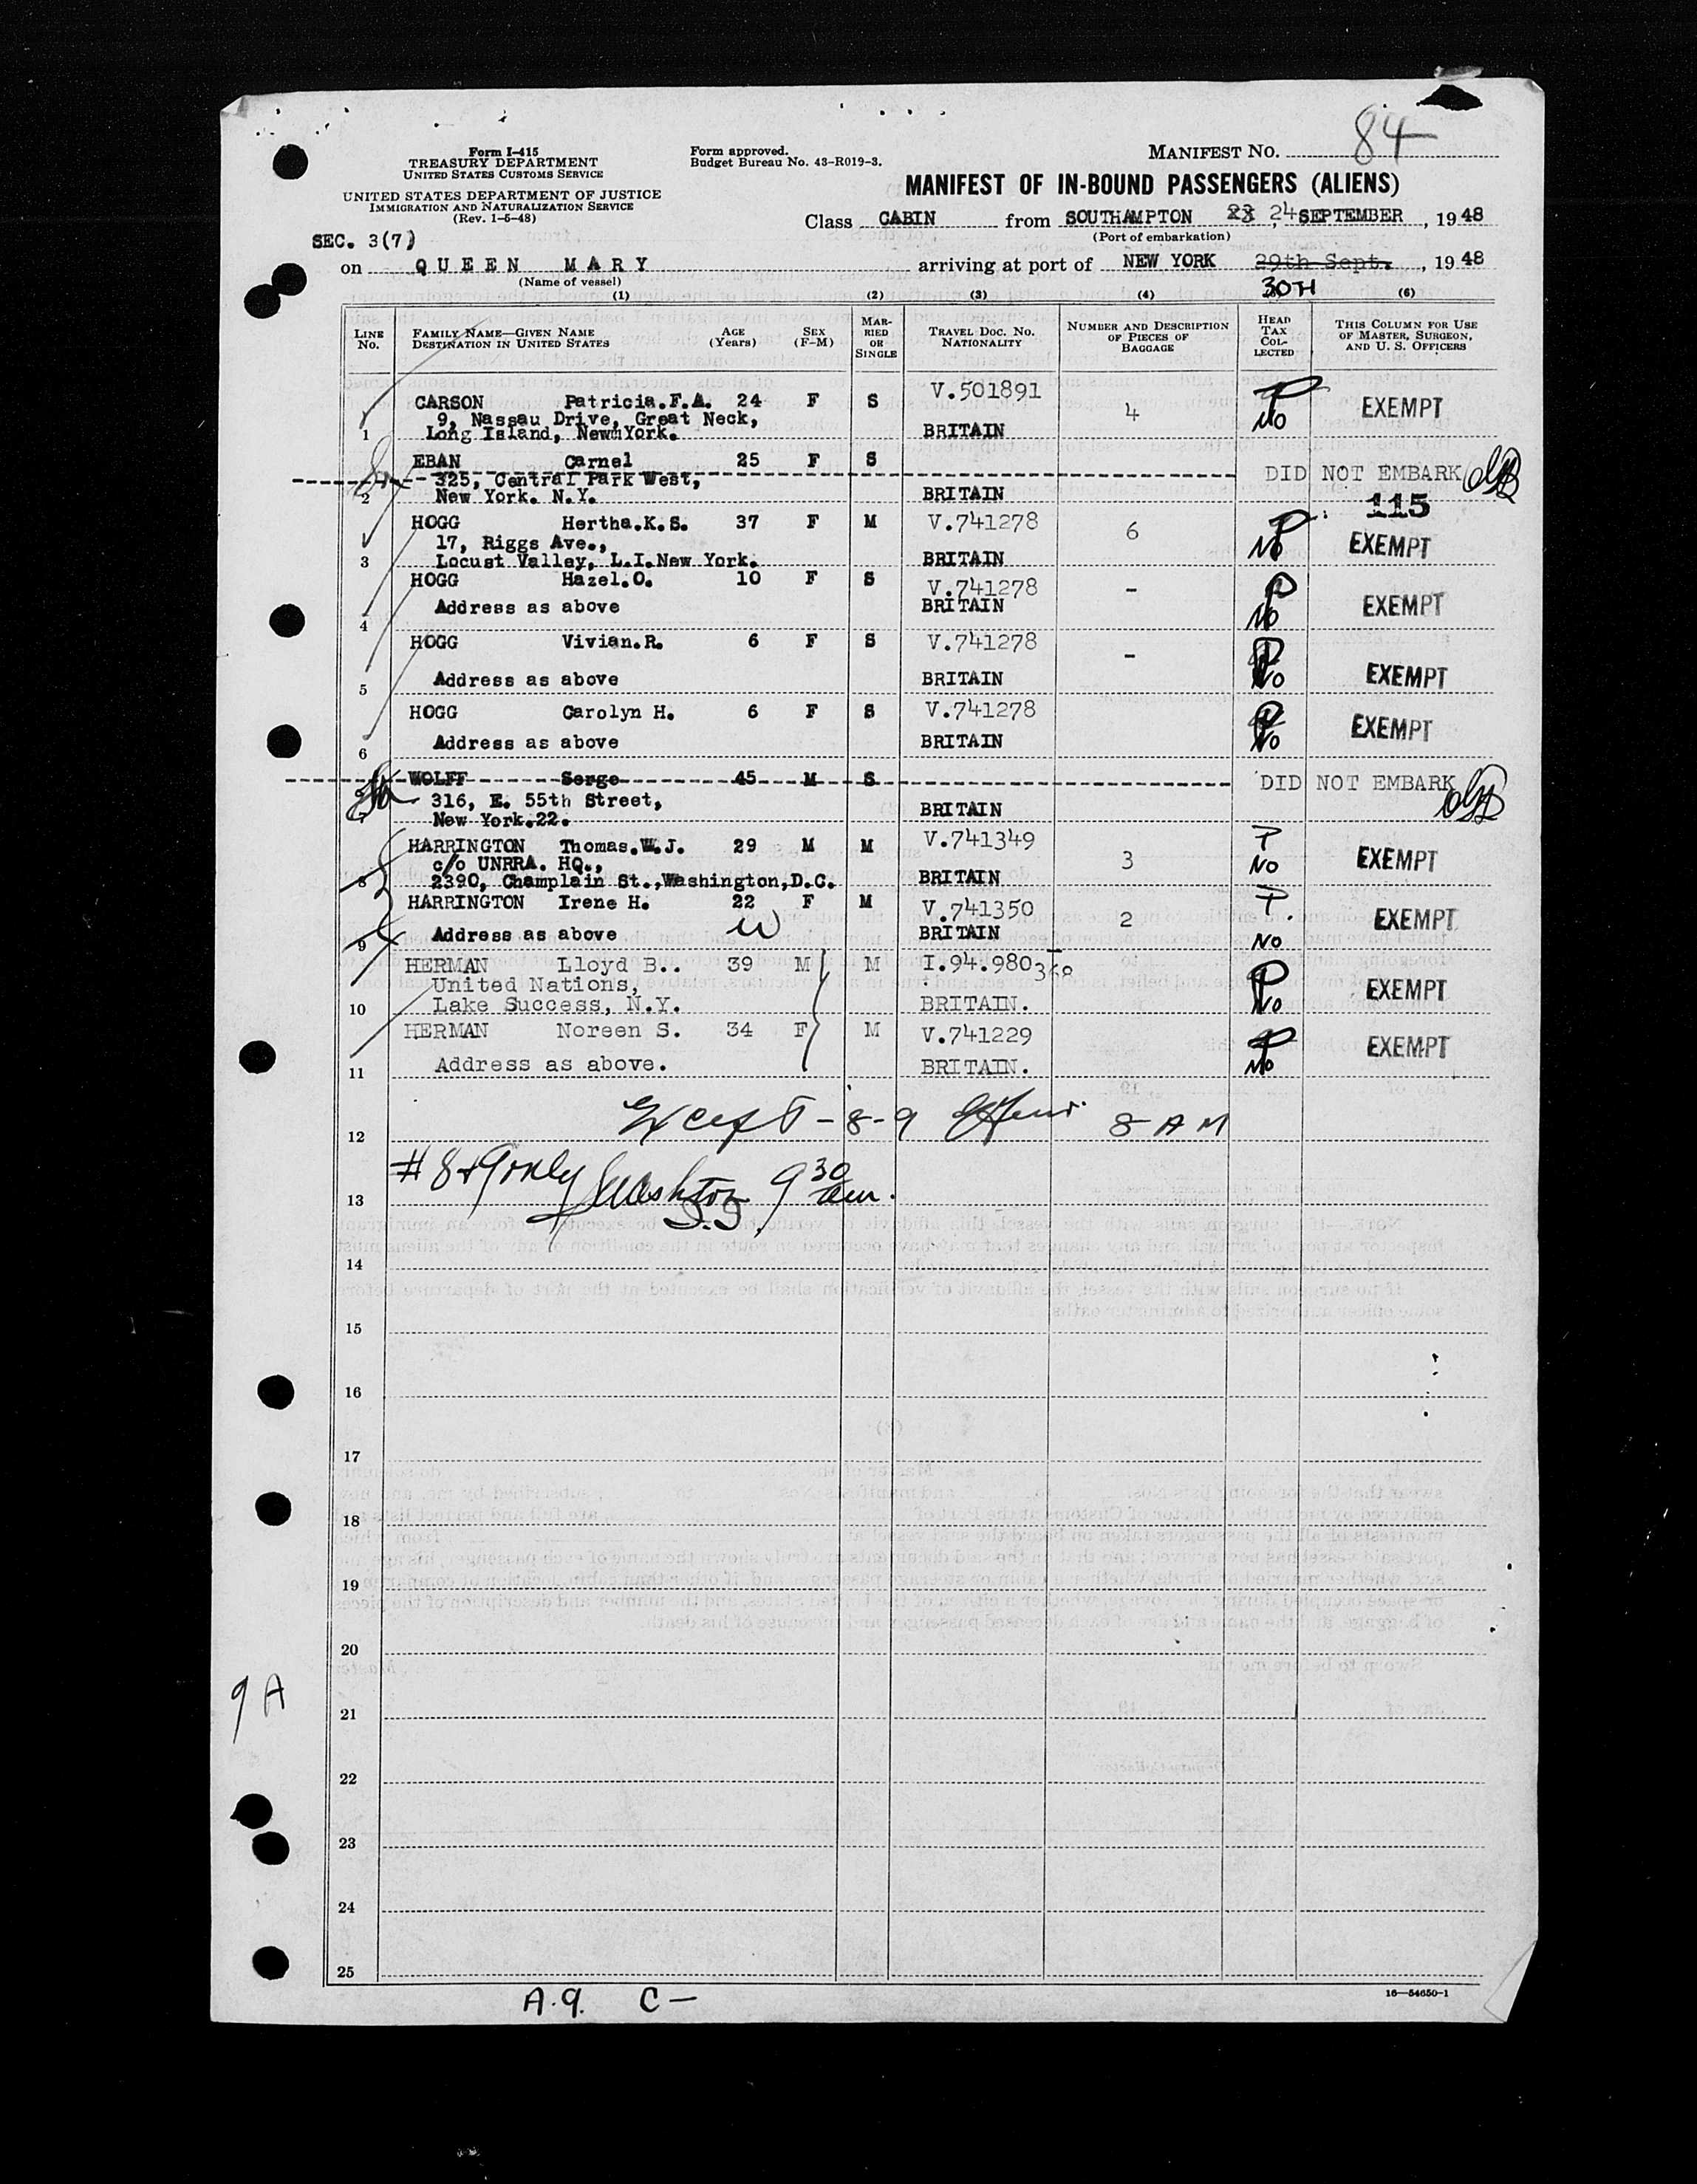 84
Form I-415
TREASURY DEPARTMENT
UNITED STATES CUSTOMS SERVICE
Form approved.
Budget Bureau No. 43-R019-3.
MANIFEST NO.
UNITED STATES DEPARTMENT OF JUSTICE
IMMIGRATION AND NATURALIZATION SERVICE
(Rev. 1-5-48)
MANIFEST OF IN-BOUND PASSENGERS (ALIENS)
Class CABIN from SOUTHAMPTON 23 24 SEPTEMBER, 1948
(Port of embarkation)
SEC. 3(7)
on QUEEN MARY arriving at port of NEW YORK 29th Sept., 1948
(Name of vessel)
30TH
(1) (2) (3) (4) (6)
LINE No. FAMILY NAME—GIVEN NAME DESTINATION IN UNITED STATES AGE (Years) SEX (F-M) MARRIED OR SINGLE TRAVEL DOC. NO. NATIONALITY NUMBER AND DESCRIPTION OF PIECES OF BAGGAGE HEAD TAX COLLECTED THIS COLUMN FOR USE OF MASTER, SURGEON, AND U. S. OFFICERS
CARSON Patricia.F.A. 24 F S V.501891 4 P NO EXEMPT
9, Nassau Drive, Great Neck,
1 Long Island, New York. BRITAIN
EBAN Carnel 25 F S DID NOT EMBARK
325, Central Park West,
2 New York. N.Y. BRITAIN
115
HOGG Hertha.K.S. 37 F M V.741278 6 P NO EXEMPT
17, Riggs Ave.,
3 Locust Valley, L.I.New York. BRITAIN
HOGG Hazel.O. 10 F S V.741278 - P NO EXEMPT
4 Address as above BRITAIN
HOGG Vivian.R. 6 F S V.741278 - P NO EXEMPT
5 Address as above BRITAIN
HOGG Carolyn H. 6 F S V.741278 P NO EXEMPT
6 Address as above BRITAIN
WOLFF Serge 45 M S DID NOT EMBARK
316, E. 55th Street, BRITAIN
7 New York.22.
HARRINGTON Thomas.W.J. 29 M M V.741349 3 P NO EXEMPT
c/o UNRRA. HQ.,
8 2390, Champlain St.,Washington,D.C. BRITAIN
HARRINGTON Irene H. 22 F M V.741350 2 P. NO EXEMPT
9 Address as above W BRITAIN
HERMAN Lloyd B.. 39 M M I.94.980368 P NO EXEMPT
United Nations,
10 Lake Success, N.Y. BRITAIN.
HERMAN Noreen S. 34 F M V.741229 P NO EXEMPT
11 Address as above. BRITAIN.
12 Except - 8-9 8 AM
13 #8+9 only 9 30 am.
14
15
16
17
18
19
20
21
9 A
22
23
24
25
A.9. C—
16—54650-1